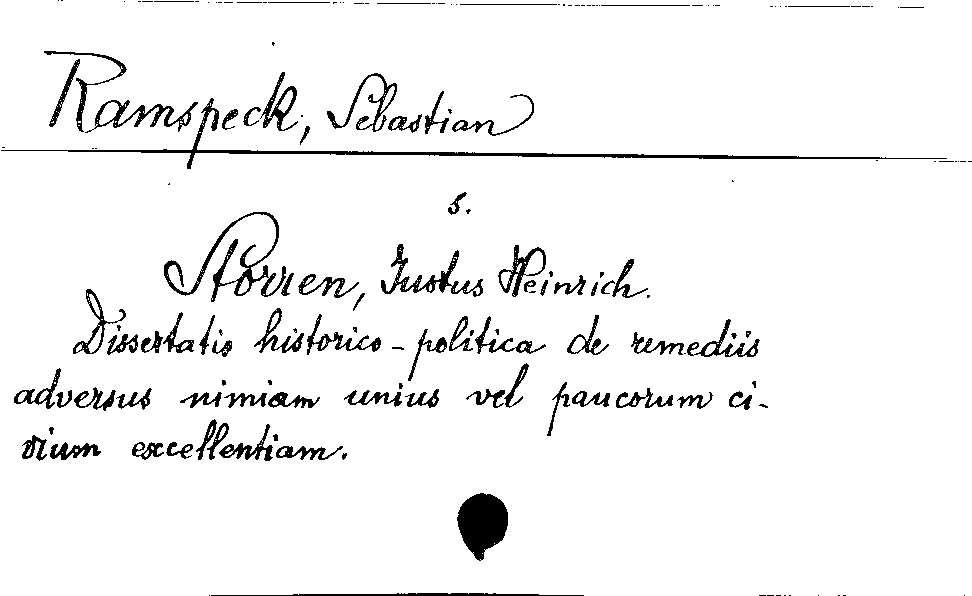 Ramspeck, Sebastian
s.
Storren, Justus Heinrich.
Dissertatio historico-politica de remediis
adversus nimiam unius vel paucorum ci-
vium excellentiam.